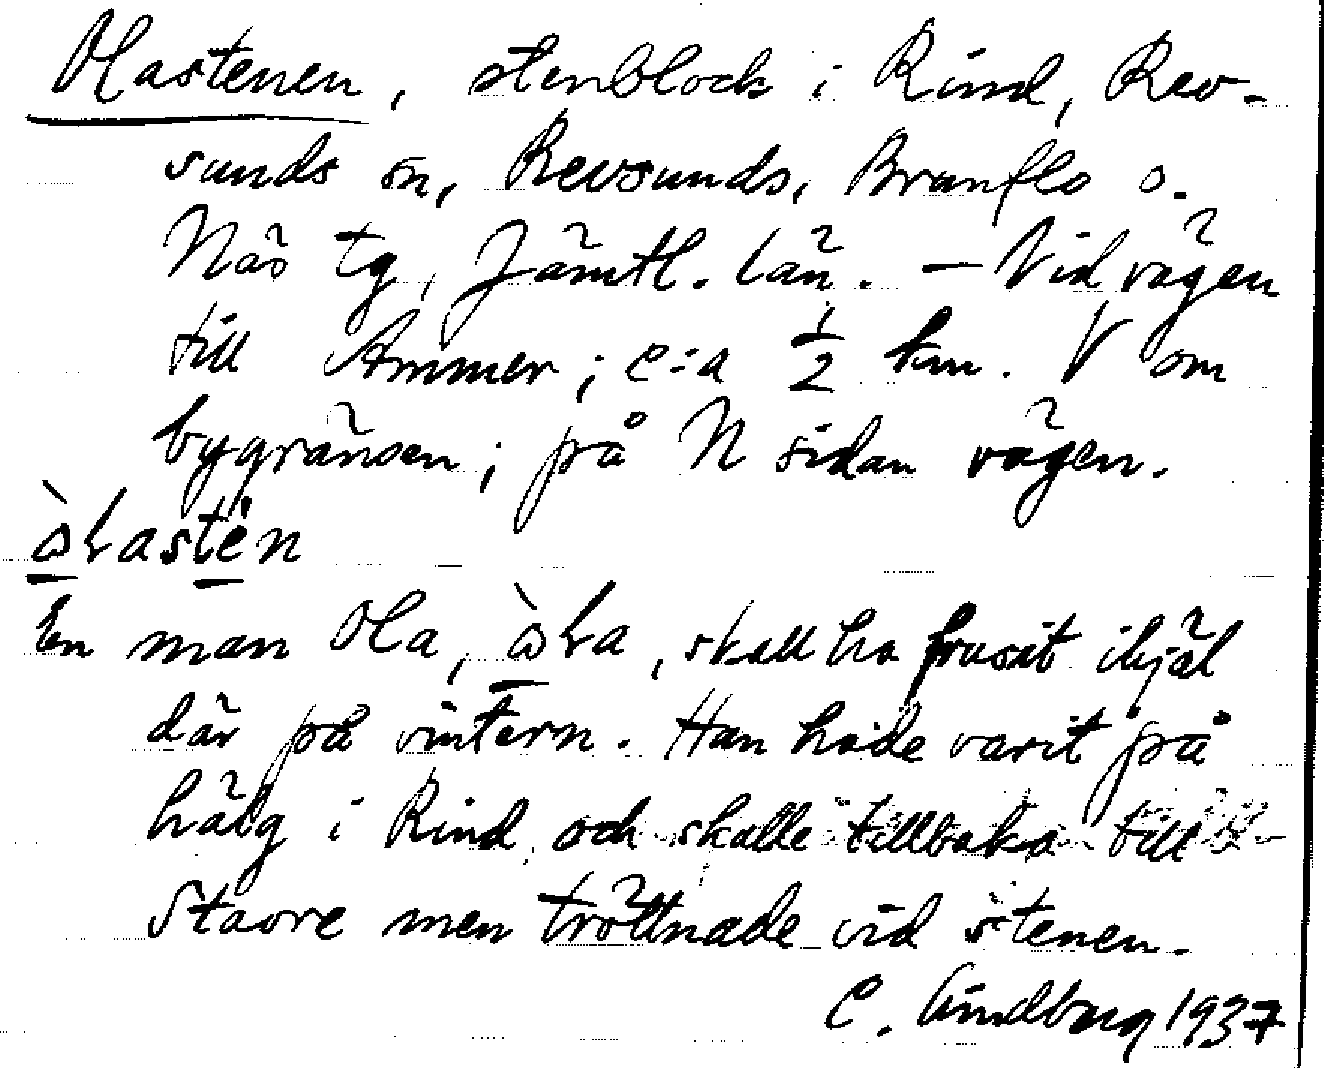 Olastenen, stenblock i Rind, Rev-
sunds sn, Revsunds, Brunflo o.
Näs tg, Jämtl. län. – Vid vägen
till Ammer; c:a 1/2 km. V om
bygränsen; på N sidan vägen.
En man Ola, skall ha frusit ihjäl
där på vintern. Han hade varit på
hälg i Rind och skulle tillbaka till
Stavre men tröttnade vid stenen.
C. Lindberg 1937